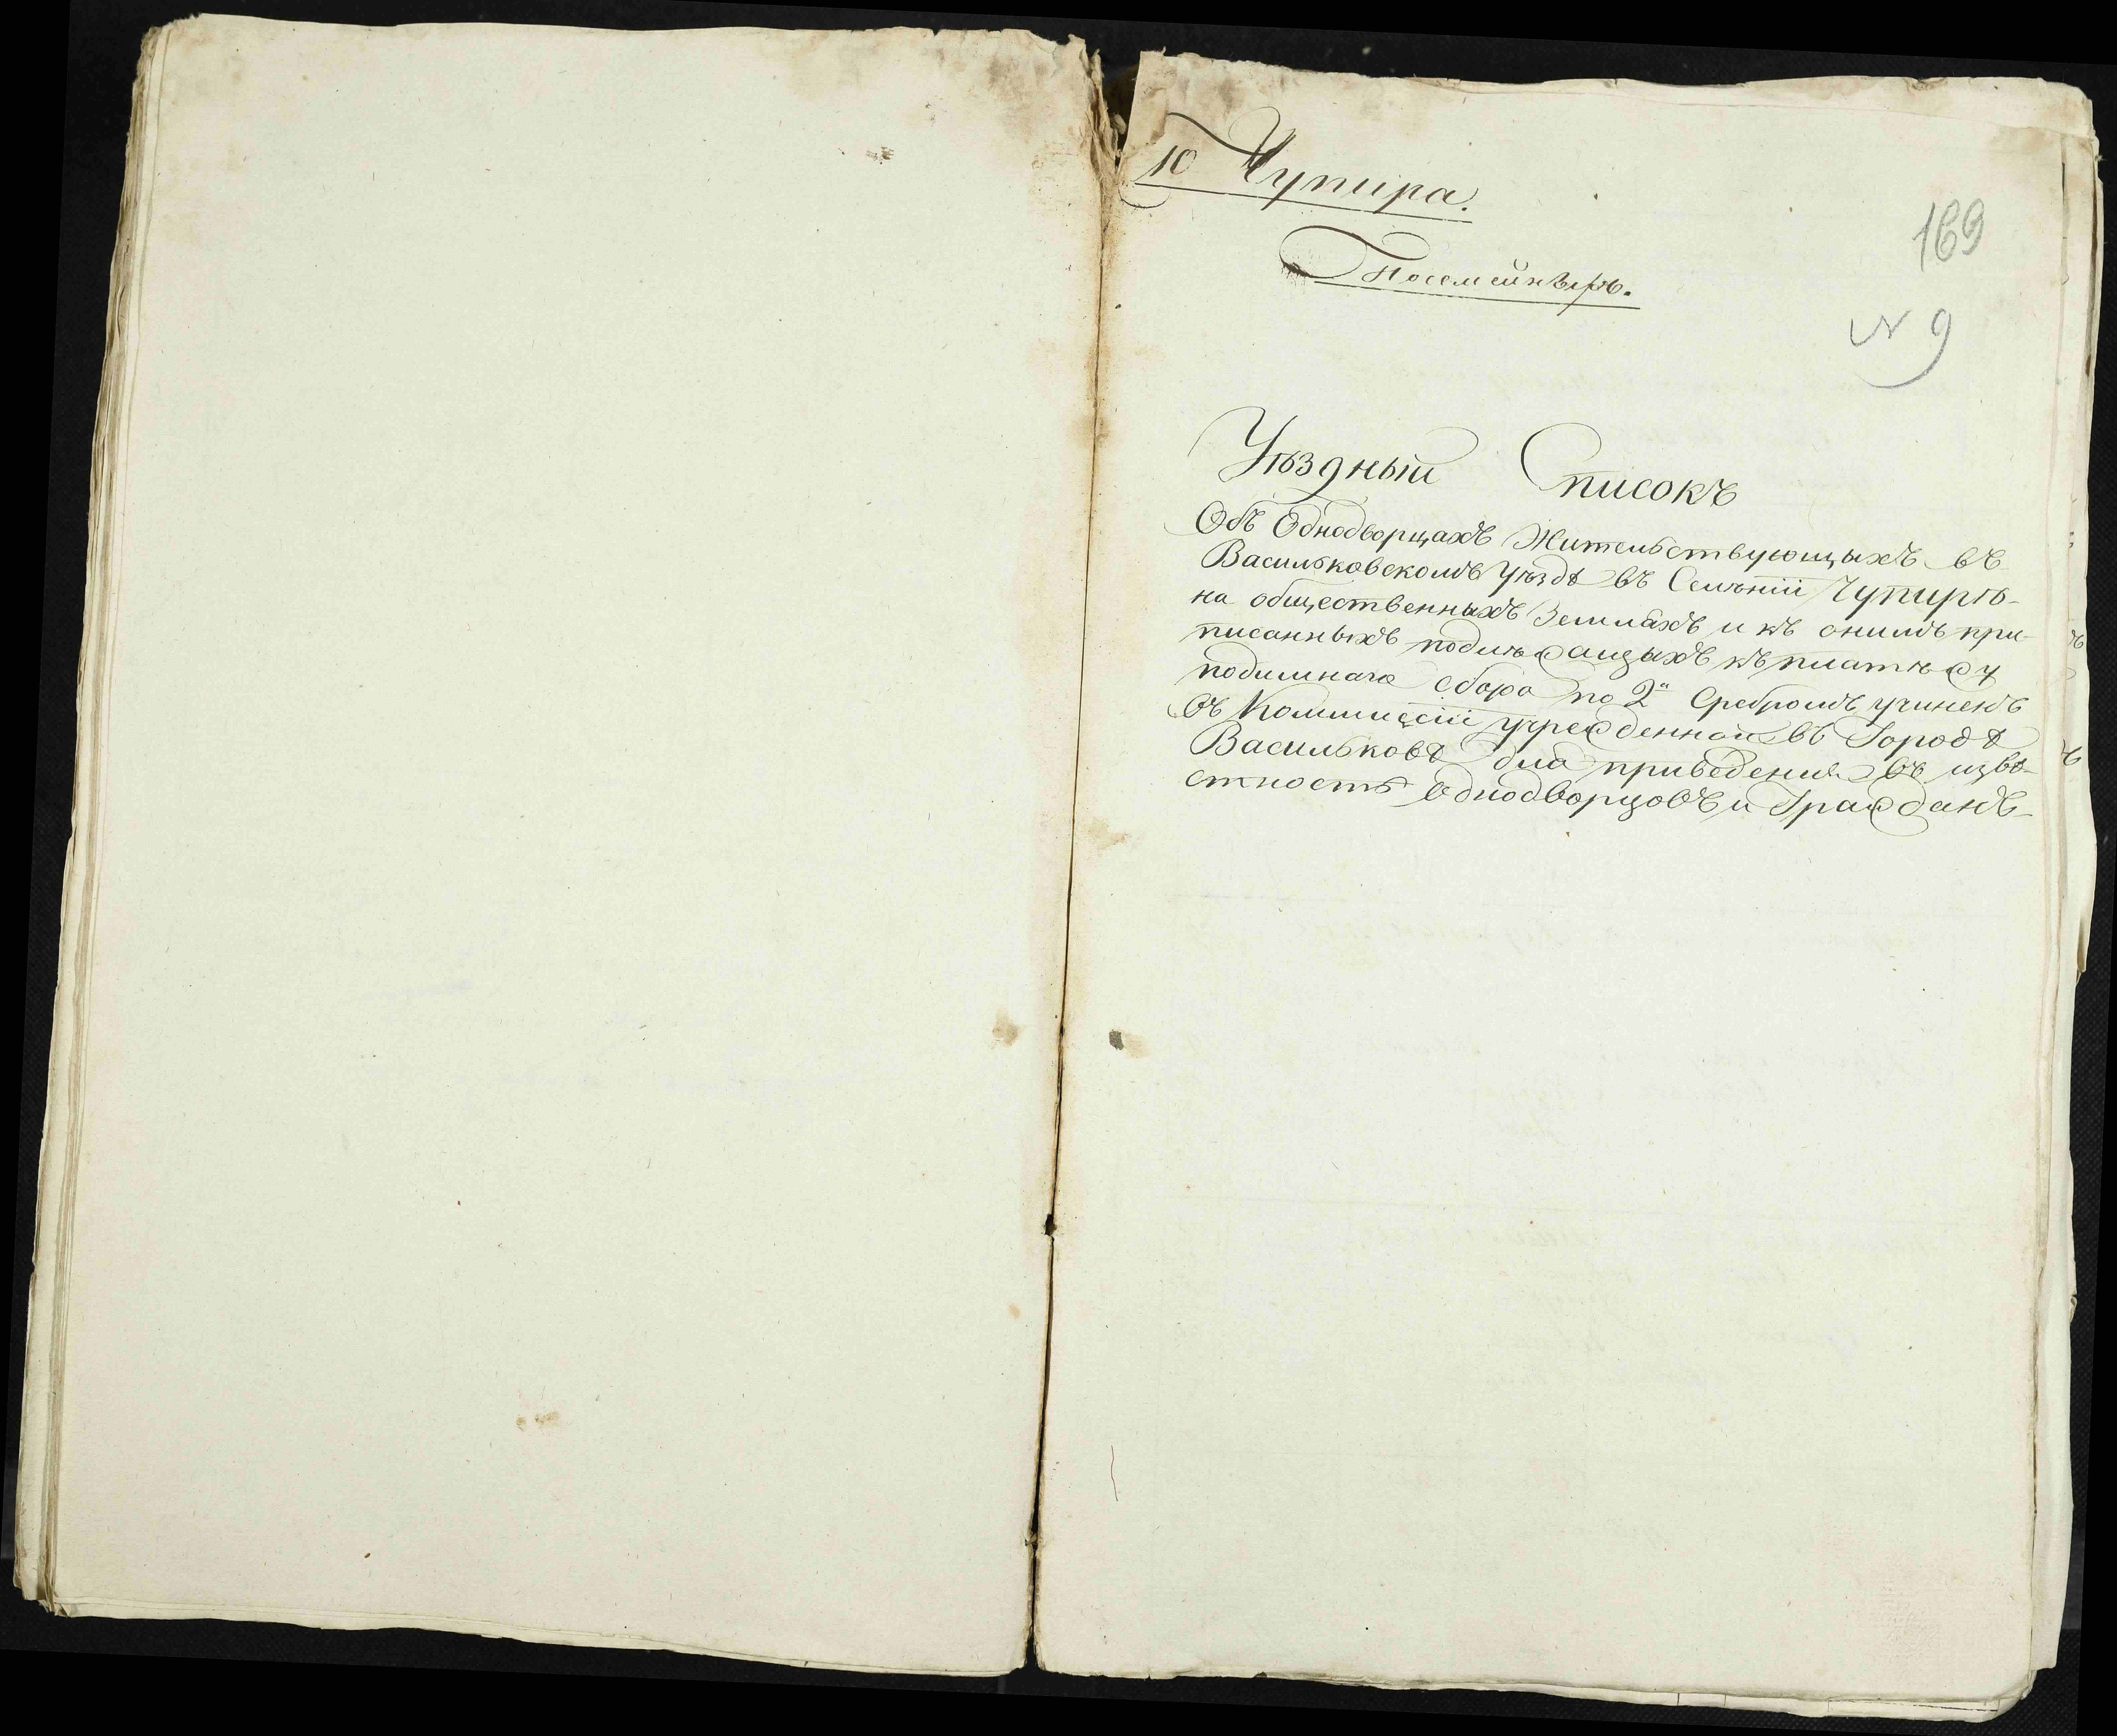 10 Чупира.
169
N 9
Уѣздный Списокъ
Объ Однодворцахъ Жительствующихъ въ
Васильковскомъ Уѣздѣ въ Селѣніи Чупирѣ
на общественныхъ Земляхъ и къ онимъ при-
писанныхъ подлѣжащихъ къ платѣжу
подимнаго сбора по 2 Сребромъ учиненъ
въ Коммиссіи учрежденной въ Городѣ
Васильковѣ для приведения въ извѣ-
стность Однодворцовъ и Гражданъ